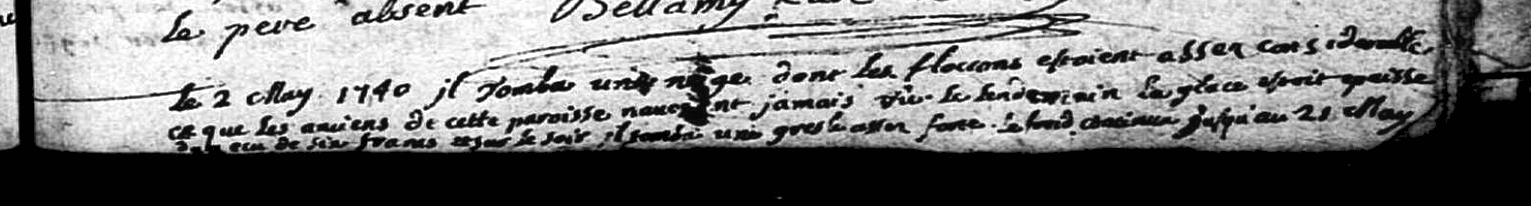 le pere absent Bellamy
le 2 May 1740 jl tomba une nège dont les floccons estoient asser considerable
ce que les anciens de cette paroisse navoient jamais vû. le lendemain la glace estoit epaisse
d'un ecu de six francs et sur le soir il tomba une gresle asser forte. le froid continua jusqu'au 21 May